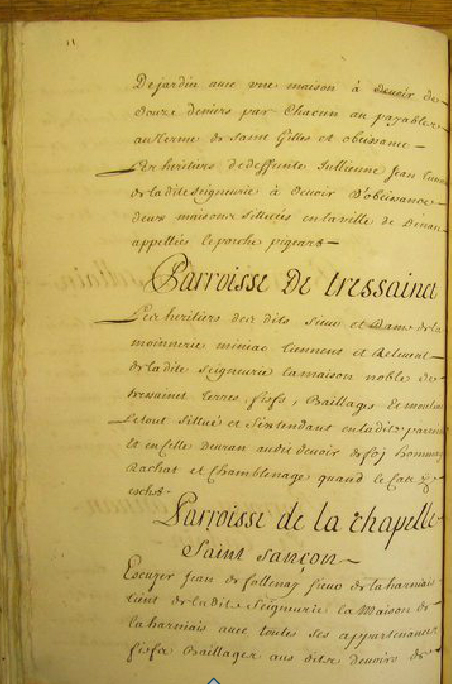 De jardin avec une maison à devoir de
douze deniers par chacun an payables
au terme de saint Gilles et obeissance
Les heritiers de deffunte Jullienne Jean
de la dite seigneurie à devoir d'obeissance
deux maisons sittuées en la ville de Dinan
appellées le porche
Parroisse De tressainct
Les heritiers des dits sieur et Dame de la
moinnerie miniac tiennent et Relevent
de la dite seigneurie la maison noble de
tressainct terres, fiefs, Baillages et
Le tout sittué et s'entendant en la dite
et en celle audit devoir de foy hommage
Rachat et Chambelnage quand le Cas y
eschet
Parroisse de la chapelle
Saint Sançon
Escuyer Jean de sieur de la harmois
tient de la dite Seigneurie la Maison de
la harmois avec toutes ses appartenances
fiefs Baillages aus dits devoirs de